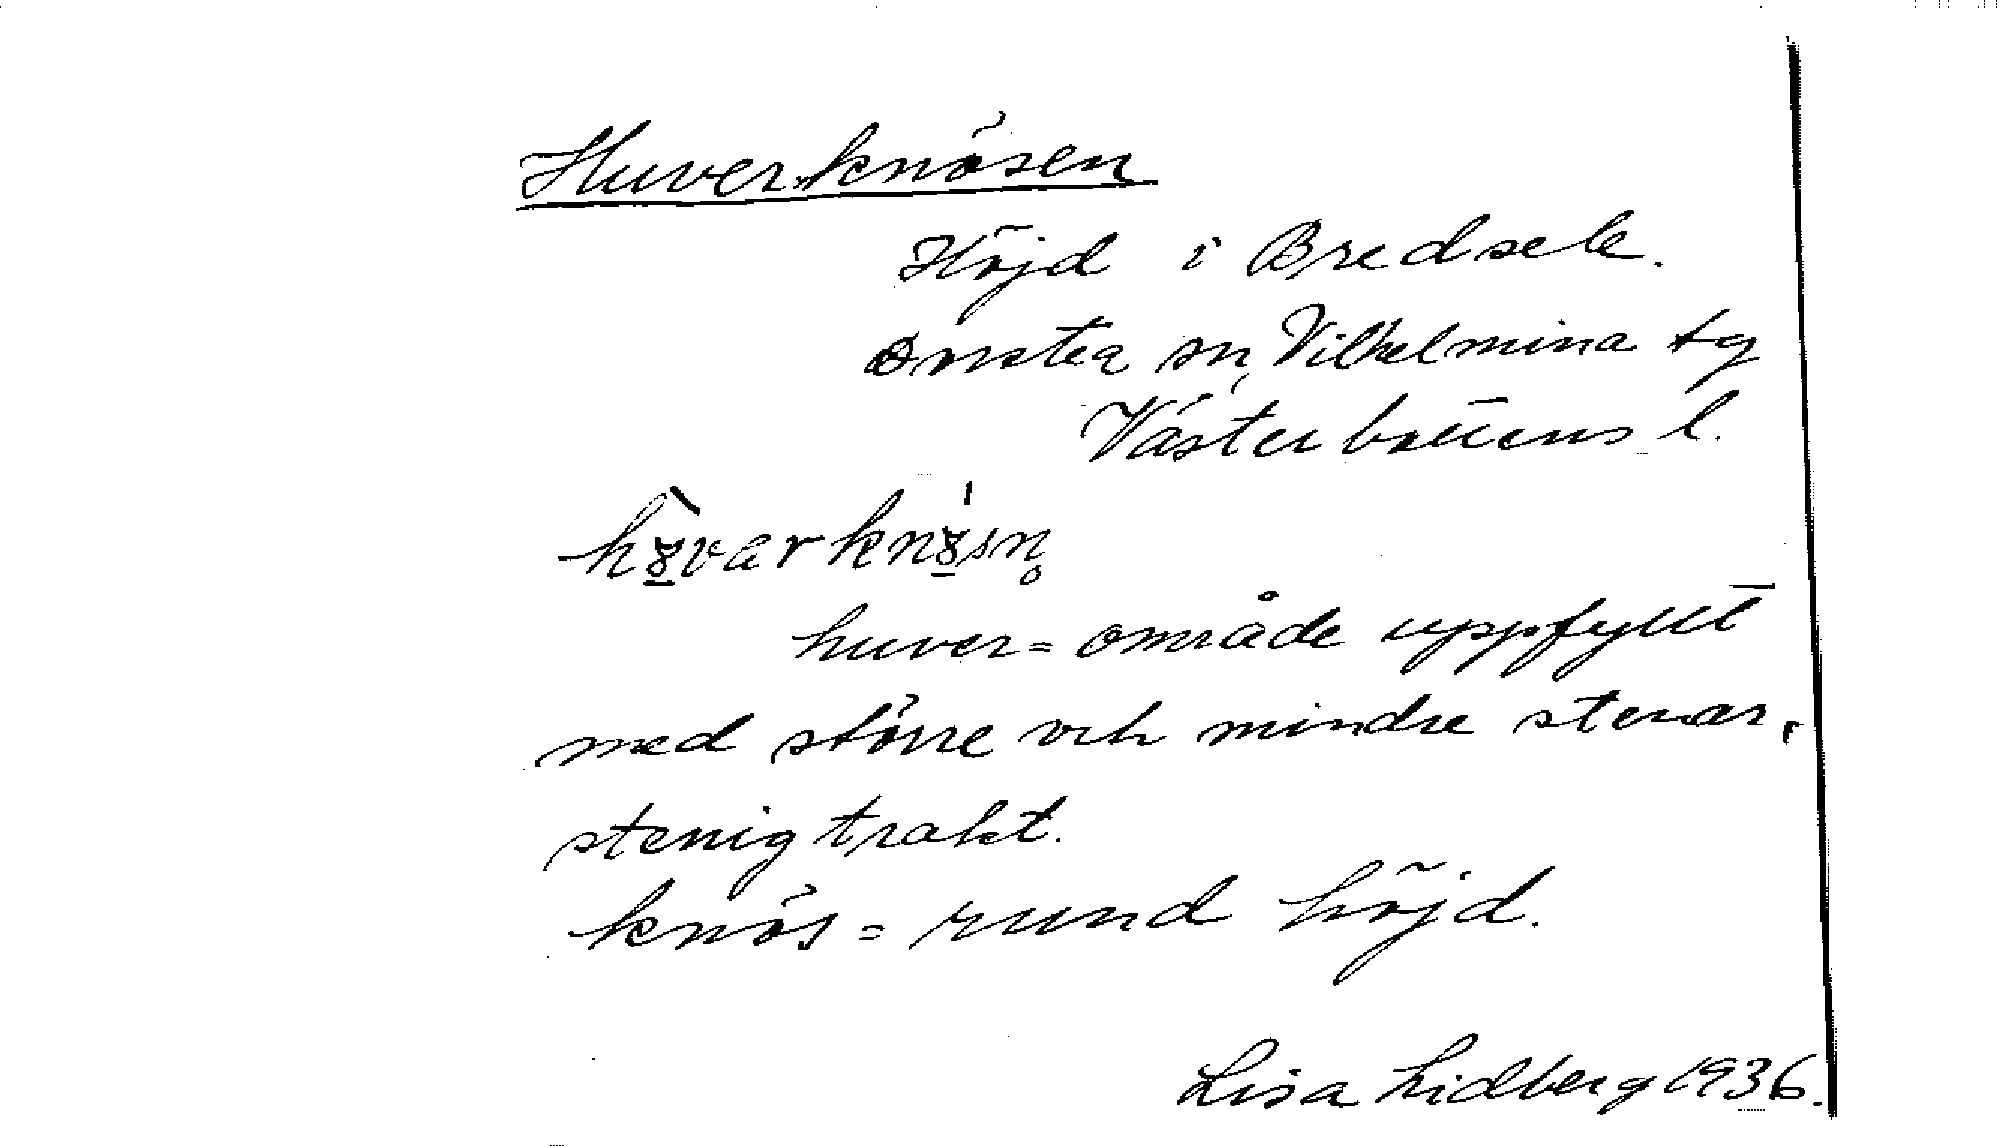 Huverknösen
Höjd i Bredsele.
Örnsten sn, Vilhelmina tg
Västerbottens l.
huver = område uppfyllt
med större och mindre stenar,
stenig trakt.
knös = rund höjd.
Lisa Lidberg 1936.